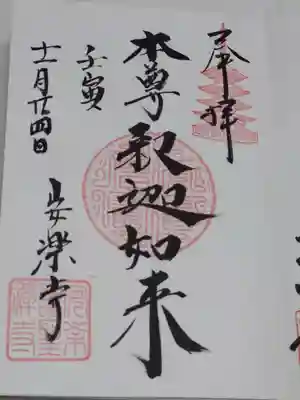 奉拝
本尊釈迦如来
壬寅
十二月廿四日
安楽寺